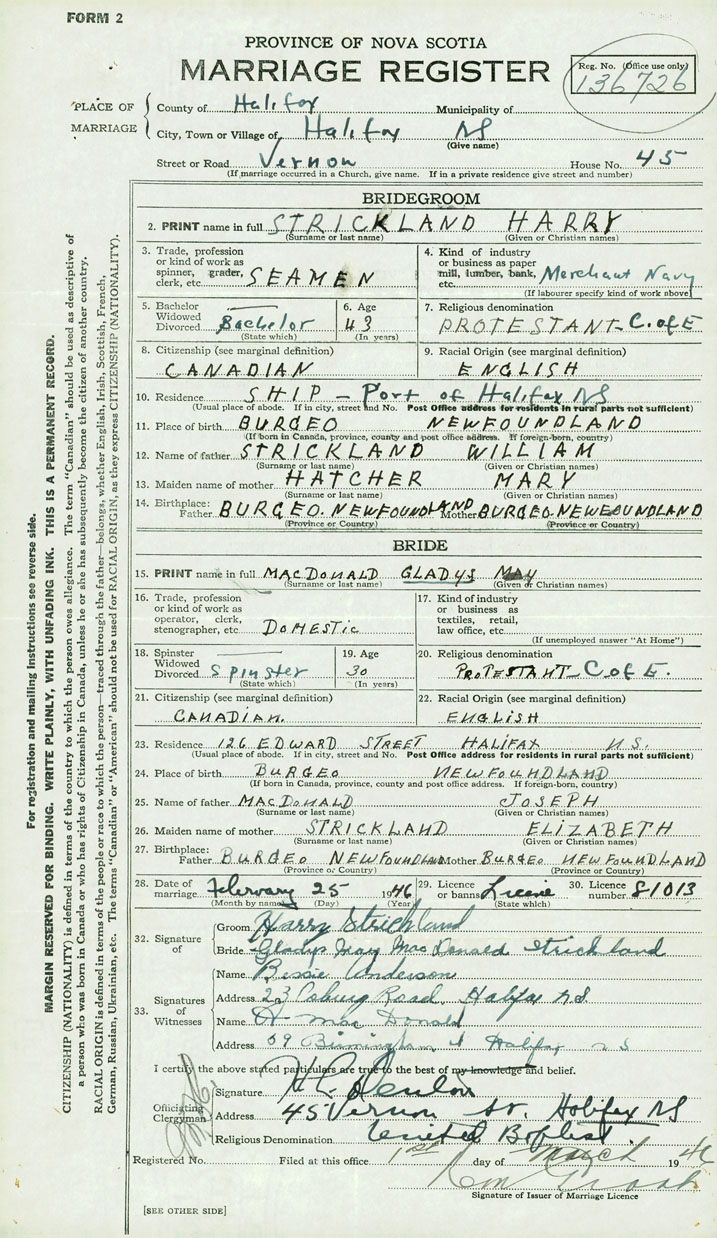 FORM 2
PROVINCE OF NOVA SCOTIA
MARRIAGE REGISTER
Reg. No. (Office use only)
136726
PLACE OF MARRIAGE
County of Halifax Municipality of
City, Town or Village of Halifax NS
(Give name)
Street or Road Vernon House No. 45
(If marriage occurred in a Church, give name. If in a private residence give street and number)
BRIDEGROOM
2. PRINT name in full STRICKLAND HARRY
(Surname or last name) (Given or Christian names)
3. Trade, profession or kind of work as spinner, grader, clerk, etc. SEAMEN
4. Kind of industry or business as paper mill, lumber, bank, etc. Merchant Navy
(If labourer specify kind of work above)
5. Bachelor Widowed Divorced Bachelor
(State which)
6. Age 43
(In years)
7. Religious denomination
PROTESTANT - C. of E
8. Citizenship (see marginal definition)
CANADIAN
9. Racial Origin (see marginal definition)
ENGLISH
10. Residence SHIP - Port of Halifax NS
(Usual place of abode. If in city, street and No. Post Office address for residents in rural parts not sufficient)
11. Place of birth BURGEO NEWFOUNDLAND
(If born in Canada, province, county and post office address. If foreign-born, country)
12. Name of father STRICKLAND WILLIAM
(Surname or last name) (Given or Christian names)
13. Maiden name of mother HATCHER MARY
(Surname or last name) (Given or Christian names)
14. Birthplace: Father BURGEO. NEWFOUNDLAND Mother BURGEO. NEWFOUNDLAND
(Province or Country) (Province or Country)
BRIDE
15. PRINT name in full MACDONALD GLADYS MAY
(Surname or last name) (Given or Christian names)
16. Trade, profession or kind of work as operator, clerk, stenographer, etc. DOMESTIC
17. Kind of industry or business as textiles, retail, law office, etc.
(If unemployed answer "At Home")
18. Spinster Widowed Divorced Spinster
(State which)
19. Age 30
(In years)
20. Religious denomination
PROTESTANT - C of E.
21. Citizenship (see marginal definition)
CANADIAN.
22. Racial Origin (see marginal definition)
ENGLISH
23. Residence 126 EDWARD STREET HALIFAX N.S.
(Usual place of abode. If in city, street and No. Post Office address for residents in rural parts not sufficient)
24. Place of birth BURGEO NEWFOUNDLAND
(If born in Canada, province, county and post office address. If foreign-born, country)
25. Name of father MACDONALD JOSEPH
(Surname or last name) (Given or Christian names)
26. Maiden name of mother STRICKLAND ELIZABETH
(Surname or last name) (Given or Christian names)
27. Birthplace: Father BURGEO NEWFOUNDLAND Mother BURGEO NEWFOUNDLAND
(Province or Country) (Province or Country)
28. Date of marriage February 25 1946
(Month by name) (Day) (Year)
29. Licence or banns
(State which)
30. Licence number S-1013
32. Signature of
Groom Harry Strickland
Bride Gladys May MacDonald Strickland
33. Signatures of Witnesses
Name Bessie Anderson
Address 23 Coburg Road. Halifax N.S.
Name MacDonald
Address 09 St Halifax N.S
I certify the above stated particulars are true to the best of my knowledge and belief.
Officiating Clergyman
Signature
Address 45 Vernon St. Halifax NS
Religious Denomination United Baptist.
Registered No. Filed at this office 1st day of March 1946
Signature of Issuer of Marriage Licence
[SEE OTHER SIDE]
For registration and mailing instructions see reverse side.
MARGIN RESERVED FOR BINDING. WRITE PLAINLY, WITH UNFADING INK. THIS IS A PERMANENT RECORD.
CITIZENSHIP (NATIONALITY) is defined in terms of the country to which the person owes allegiance. The term "Canadian" should be used as descriptive of
a person who was born in Canada or who has rights of Citizenship in Canada, unless he or she has subsequently become the citizen of another country.
RACIAL ORIGIN is defined in terms of the people or race to which the person—traced through the father—belongs, whether English, Irish, Scottish, French,
German, Russian, Ukrainian, etc. The terms "Canadian" or "American" should not be used for RACIAL ORIGIN, as they express CITIZENSHIP (NATIONALITY).